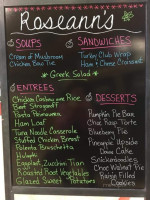 Roseann's
SOUPS
Cream of Mushroom
Chicken Pot Pie
SANDWICHES
Turkey Club Wrap
Ham & Cheese Croissant
Greek Salad
ENTREES
Chicken Cordon Rice
Beef Stroganoff
Pasta
Ham Loaf
Tuna Noodle Casserole
Stuffed Chicken Breast
Polenta
Haluski
Eggplant, Zucchini
Roasted Root Vegetables
Glazed Sweet Potatoes
DESSERTS
Pumpkin Pie Bar
Choc Tart
Blueberry Pie
Pineapple Upside
Down Cake
Snickerdoodles
Choc Walnut Pie
Filled
Cookies